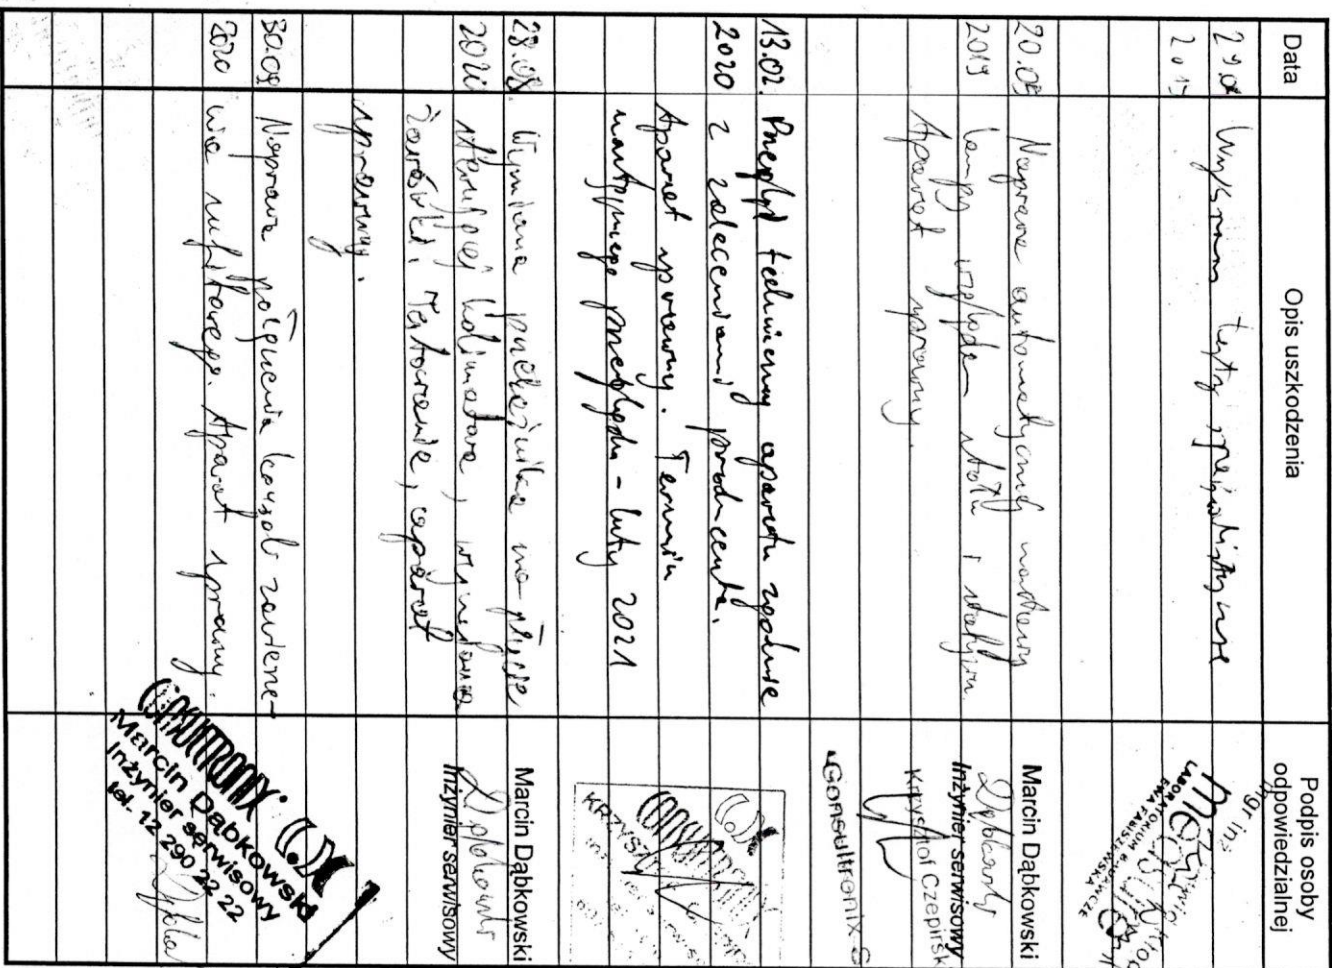 Data
Opis uszkodzenia
Podpis osoby
odpowiedzialnej
2019
testy specjalistyczne
mgr inż.
LABORATORIUM BADAWCZE
EWA FABISZEWSKA
20.08
2019
Naprawa automatycznej nadążny
lampy względem stołu i statywu.
Aparat sprawny.
Marcin Dąbkowski
Inżynier serwisowy
Krzysztof Czepirsk
Consultronix S
13.02.
2020
Przegląd techniczny aparatu zgodnie
z zaleceniami producenta.
Aparat sprawny. Termin
następnego przeglądu - luty 2021
CONSULTRONIX
KRZYSZ
28.08.
2020
Wymiana przekaźnika na płycie
sterującej kolimatora, wymiana
żarówki. Testowanie, aparat
sprawny.
Marcin Dąbkowski
Inżynier serwisowy
30.09
2020
Naprawa połączenia kaczek zawiesze-
nia sufitowego. Aparat sprawny.
CONSULTRONIX
Marcin Dąbkowski
Inżynier serwisowy
tel. 12 290 22 22